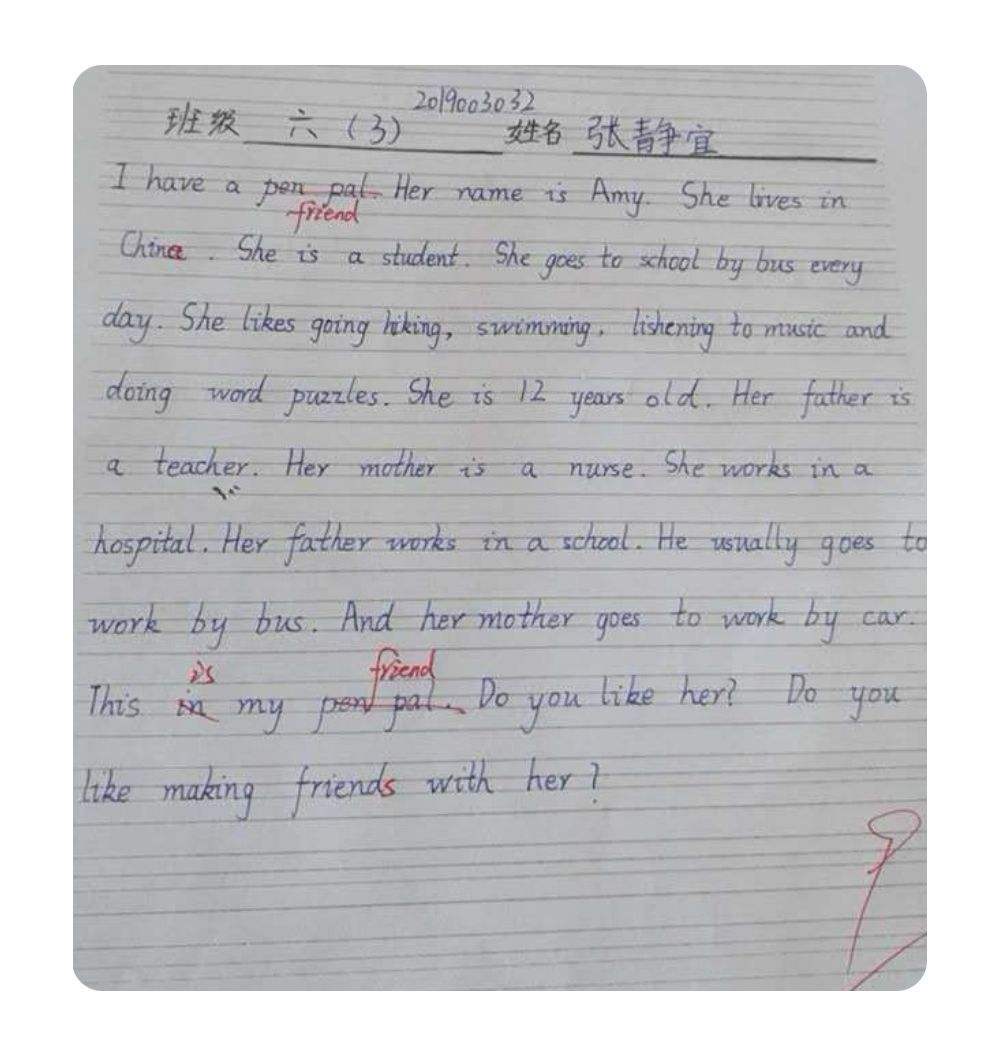 2019003032
班级 六(3) 姓名 张静宜
I have a pen pal. Her name is Amy. She lives in
friend
China. She is a student. She goes to school by bus every
day. She likes going hiking, swimming, lishening to music and
doing word puzzles. She is 12 years old. Her father is
a teacher. Her mother is a nurse. She works in a
hospital. Her father works in a school. He usually goes to
work by bus. And her mother goes to work by car.
is friend
This in my pen pal. Do you like her? Do you
like making friends with her?